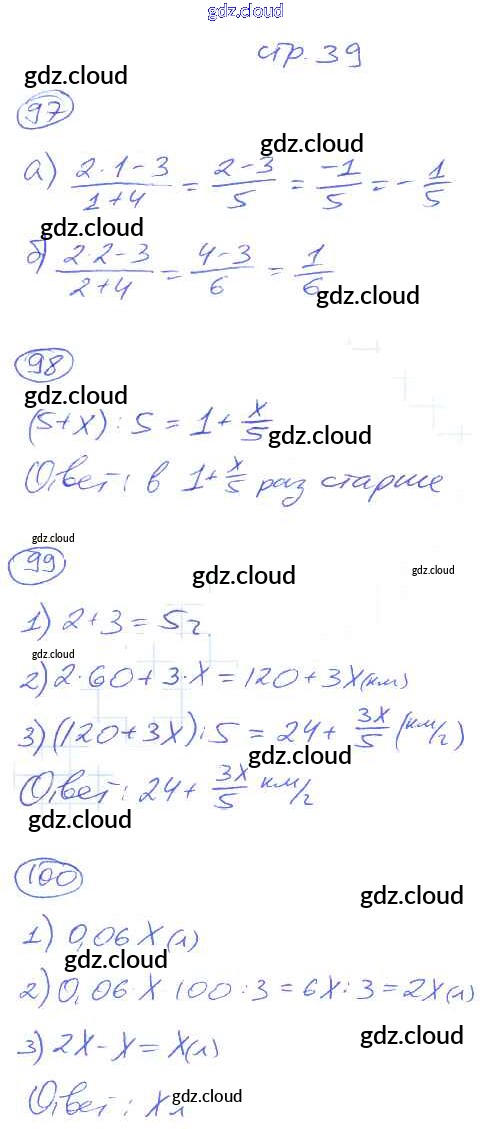 gdz.cloud
стр. 39
gdz.cloud
97
gdz.cloud
а) (2·1-3)/(1+4) = (2-3)/5 = -1/5 = -1/5
gdz.cloud
б) (2·2-3)/(2+4) = (4-3)/6 = 1/6
gdz.cloud
98
gdz.cloud
(5+x) : 5 = 1 + x/5
gdz.cloud
Ответ: в 1+x/5 раз старше
gdz.cloud
99
gdz.cloud
gdz.cloud
1) 2+3=5 ч.
gdz.cloud
2) 2·60+3·x=120+3x (км)
3) (120+3x):5 = 24+ 3x/5 (км/ч)
gdz.cloud
Ответ: 24+ 3x/5 км/ч
gdz.cloud
100
gdz.cloud
1) 0,06x (л)
gdz.cloud
2) 0,06·x 100:3=6x:3=2x (л)
gdz.cloud
3) 2x-x=x (л)
gdz.cloud
Ответ: x л